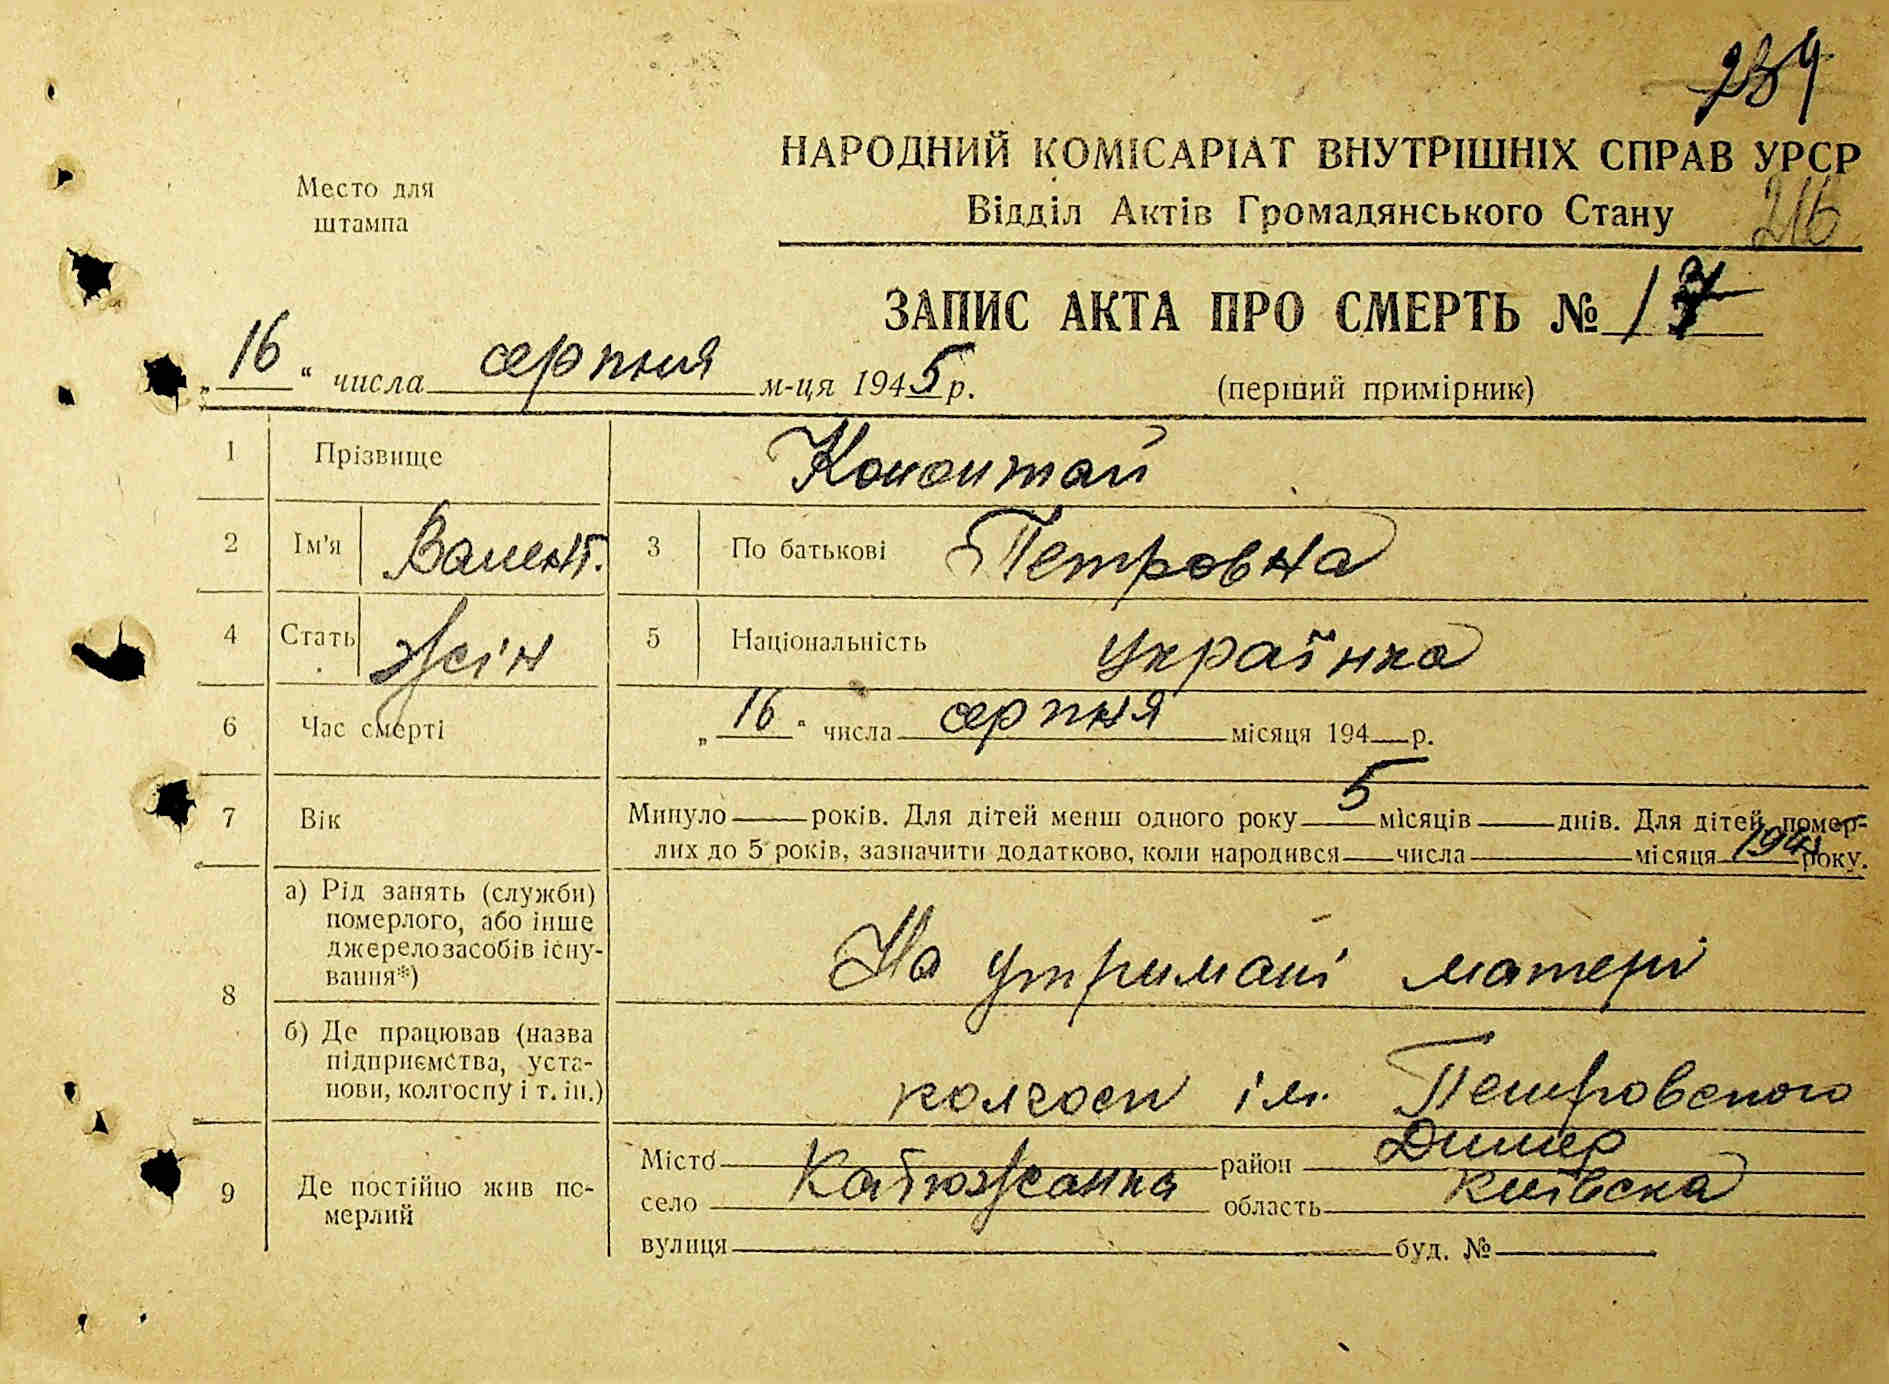 234
НАРОДНИЙ КОМІСАРІАТ ВНУТРІШНІХ СПРАВ УРСР
Место для штампа
Відділ Актів Громадянського Стану 216
ЗАПИС АКТА ПРО СМЕРТЬ № 17
„16“ числа серпня м-ця 1945 р. (перший примірник)
1 Прізвище
2 Ім'я Валент. 3 По батькові Петровна
4 Стать жін 5 Національність українка
6 Час смерті „16“ числа серпня місяця 194 р.
7 Вік Минуло років. Для дітей менш одного року 5 місяців днів. Для дітей помер-
лих до 5 років, зазначити додатково, коли народився числа місяця року.
8 а) Рід занять (служби)
померлого, або інше
джерело засобів існу-
вання*) На утримані матері
б) Де працював (назва
підприємства, уста-
нови, колгоспу і т. ін.) колгосп ім. Петровского
9 Де постійно жив по-
мерлий
Місто район Димер
село Катюжанка область київска
вулиця буд. №